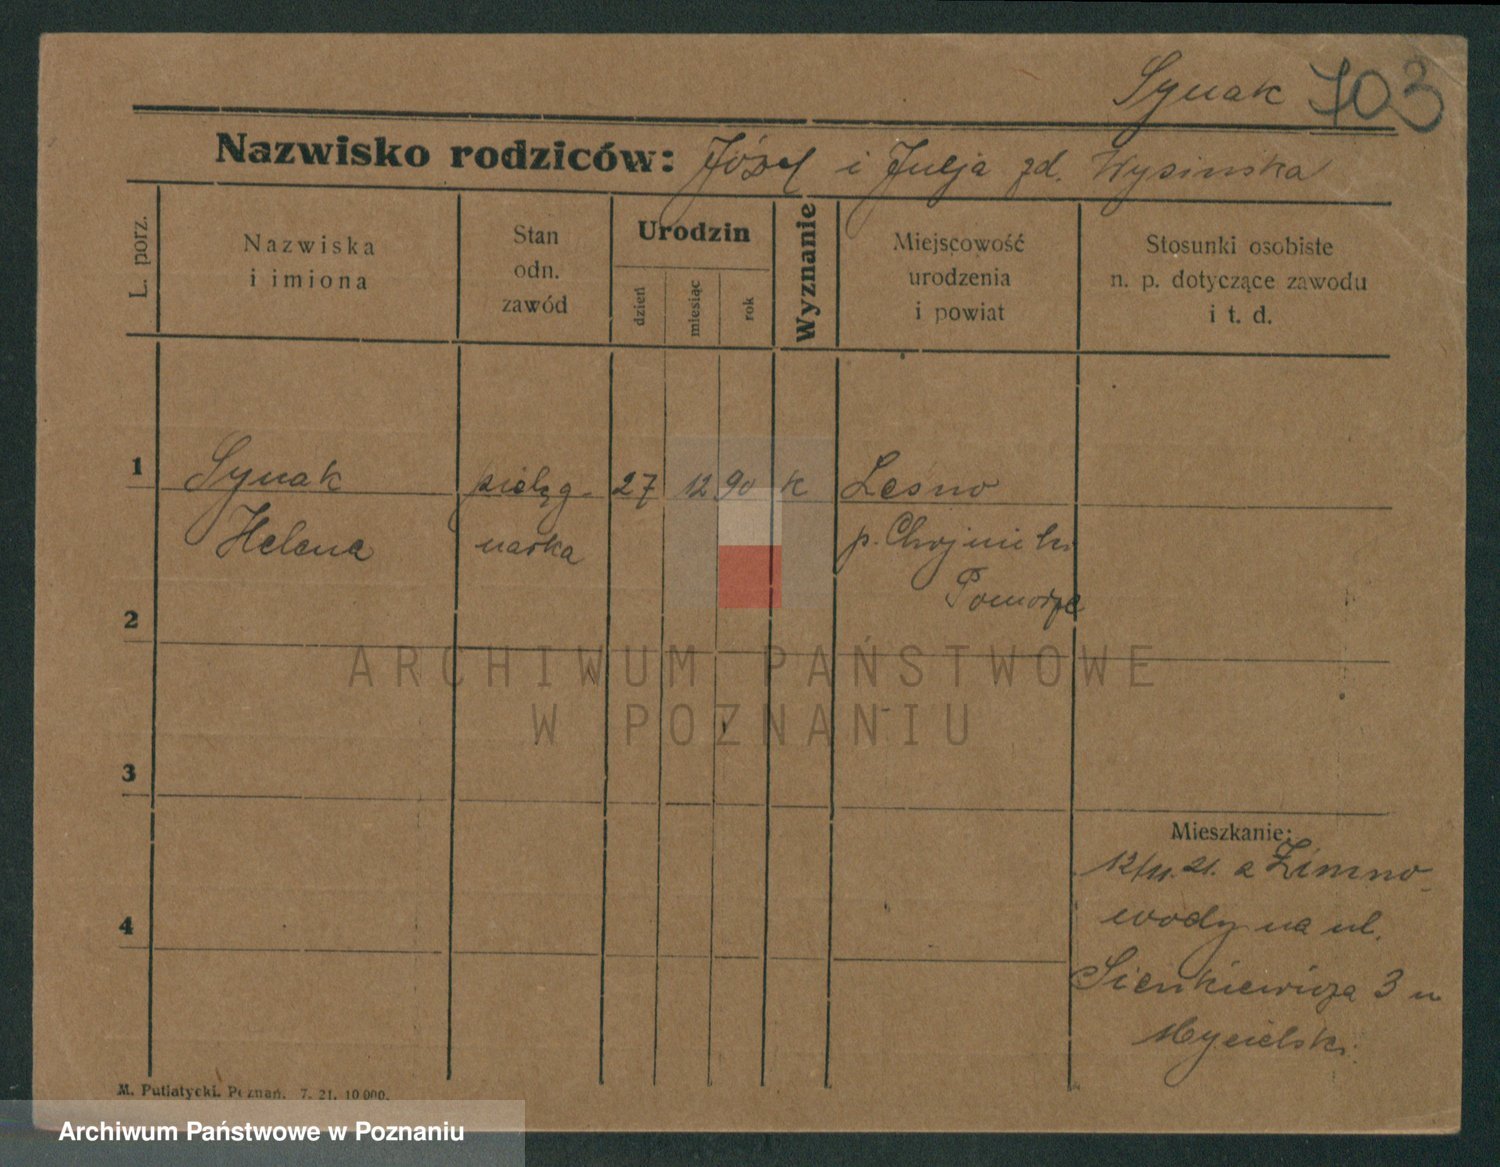 Synak 703
Nazwisko rodziców: Józef i Julja zd. Wysinska
L. porz.
Nazwiska
i imiona
Stan
odn.
zawód
Urodzin
dzień
miesiąc
rok
Wyznanie
Miejscowość
urodzenia
i powiat
Stosunki osobiste
n. p. dotyczące zawodu
i t. d.
1
Synak pielęg- 27 12 90 k Lesno
Helena narka p. Chojnicki
Pomorze
2
ARCHIWUM PAŃSTWOWE
W POZNANIU
3
Mieszkanie:
12/11.21. z Zimno-
4
wody na ul.
Sienkiewicza 3 u
Mycielski
M. Putiatycki, Poznań. 7. 21. 10 000.
Archiwum Państwowe w Poznaniu